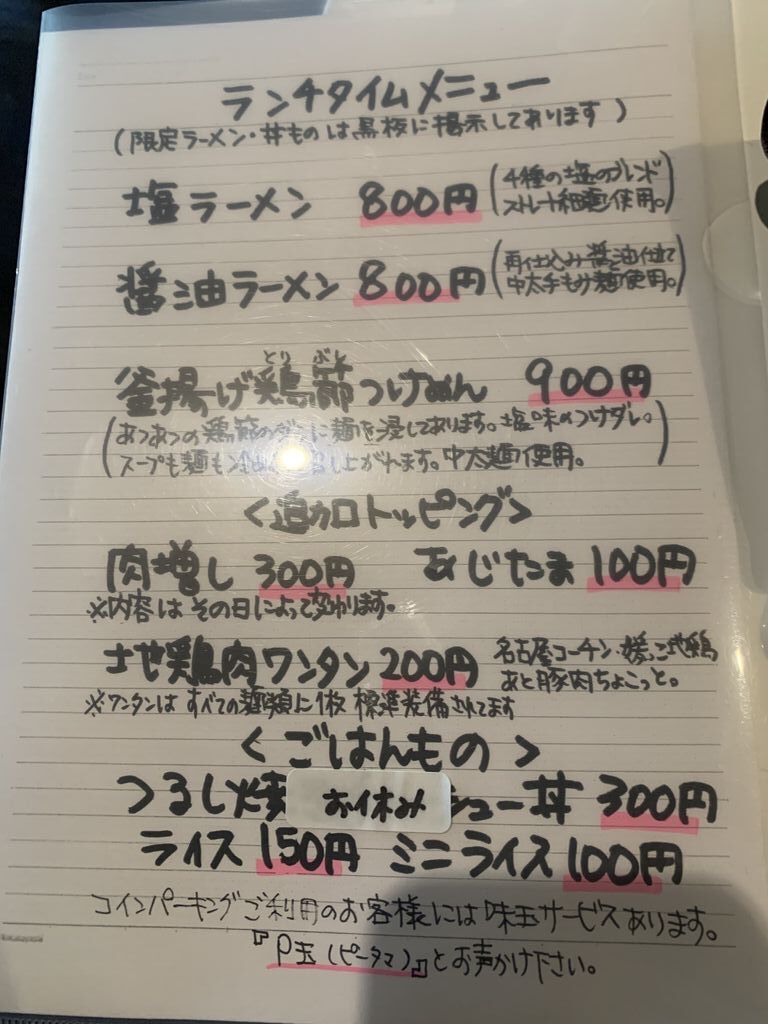 ランチタイムメニュー
(限定ラーメン・丼ものは黒板に掲示しております)
塩ラーメン 800円 (4種の塩のブレンド
ストレート細麺使用。)
醤油ラーメン 800円 (再仕込み醤油仕立て
中太手もみ麺使用。)
とり ぶし
釜揚げ鶏節つけめん 900円
(あつあつの鶏節のに麺を浸してあります。塩味のつけダレ。
スープも麺も上がれます。中太麺使用。)
<追加トッピング>
肉増し 300円 あじたま 100円
※内容はその日によって変わります。
地鶏肉ワンタン 200円 名古屋コーチン・媛っこ地鶏
あと豚肉ちょこっと。
※ワンタンはすべての麺類に1枚 標準装備されてます
<ごはんもの>
つるし焼 お休み シュー丼 300円
ライス 150円 ミニライス 100円
コインパーキングご利用のお客様には味玉サービスあります。
『P玉(ピータマ)』とお声かけ下さい。